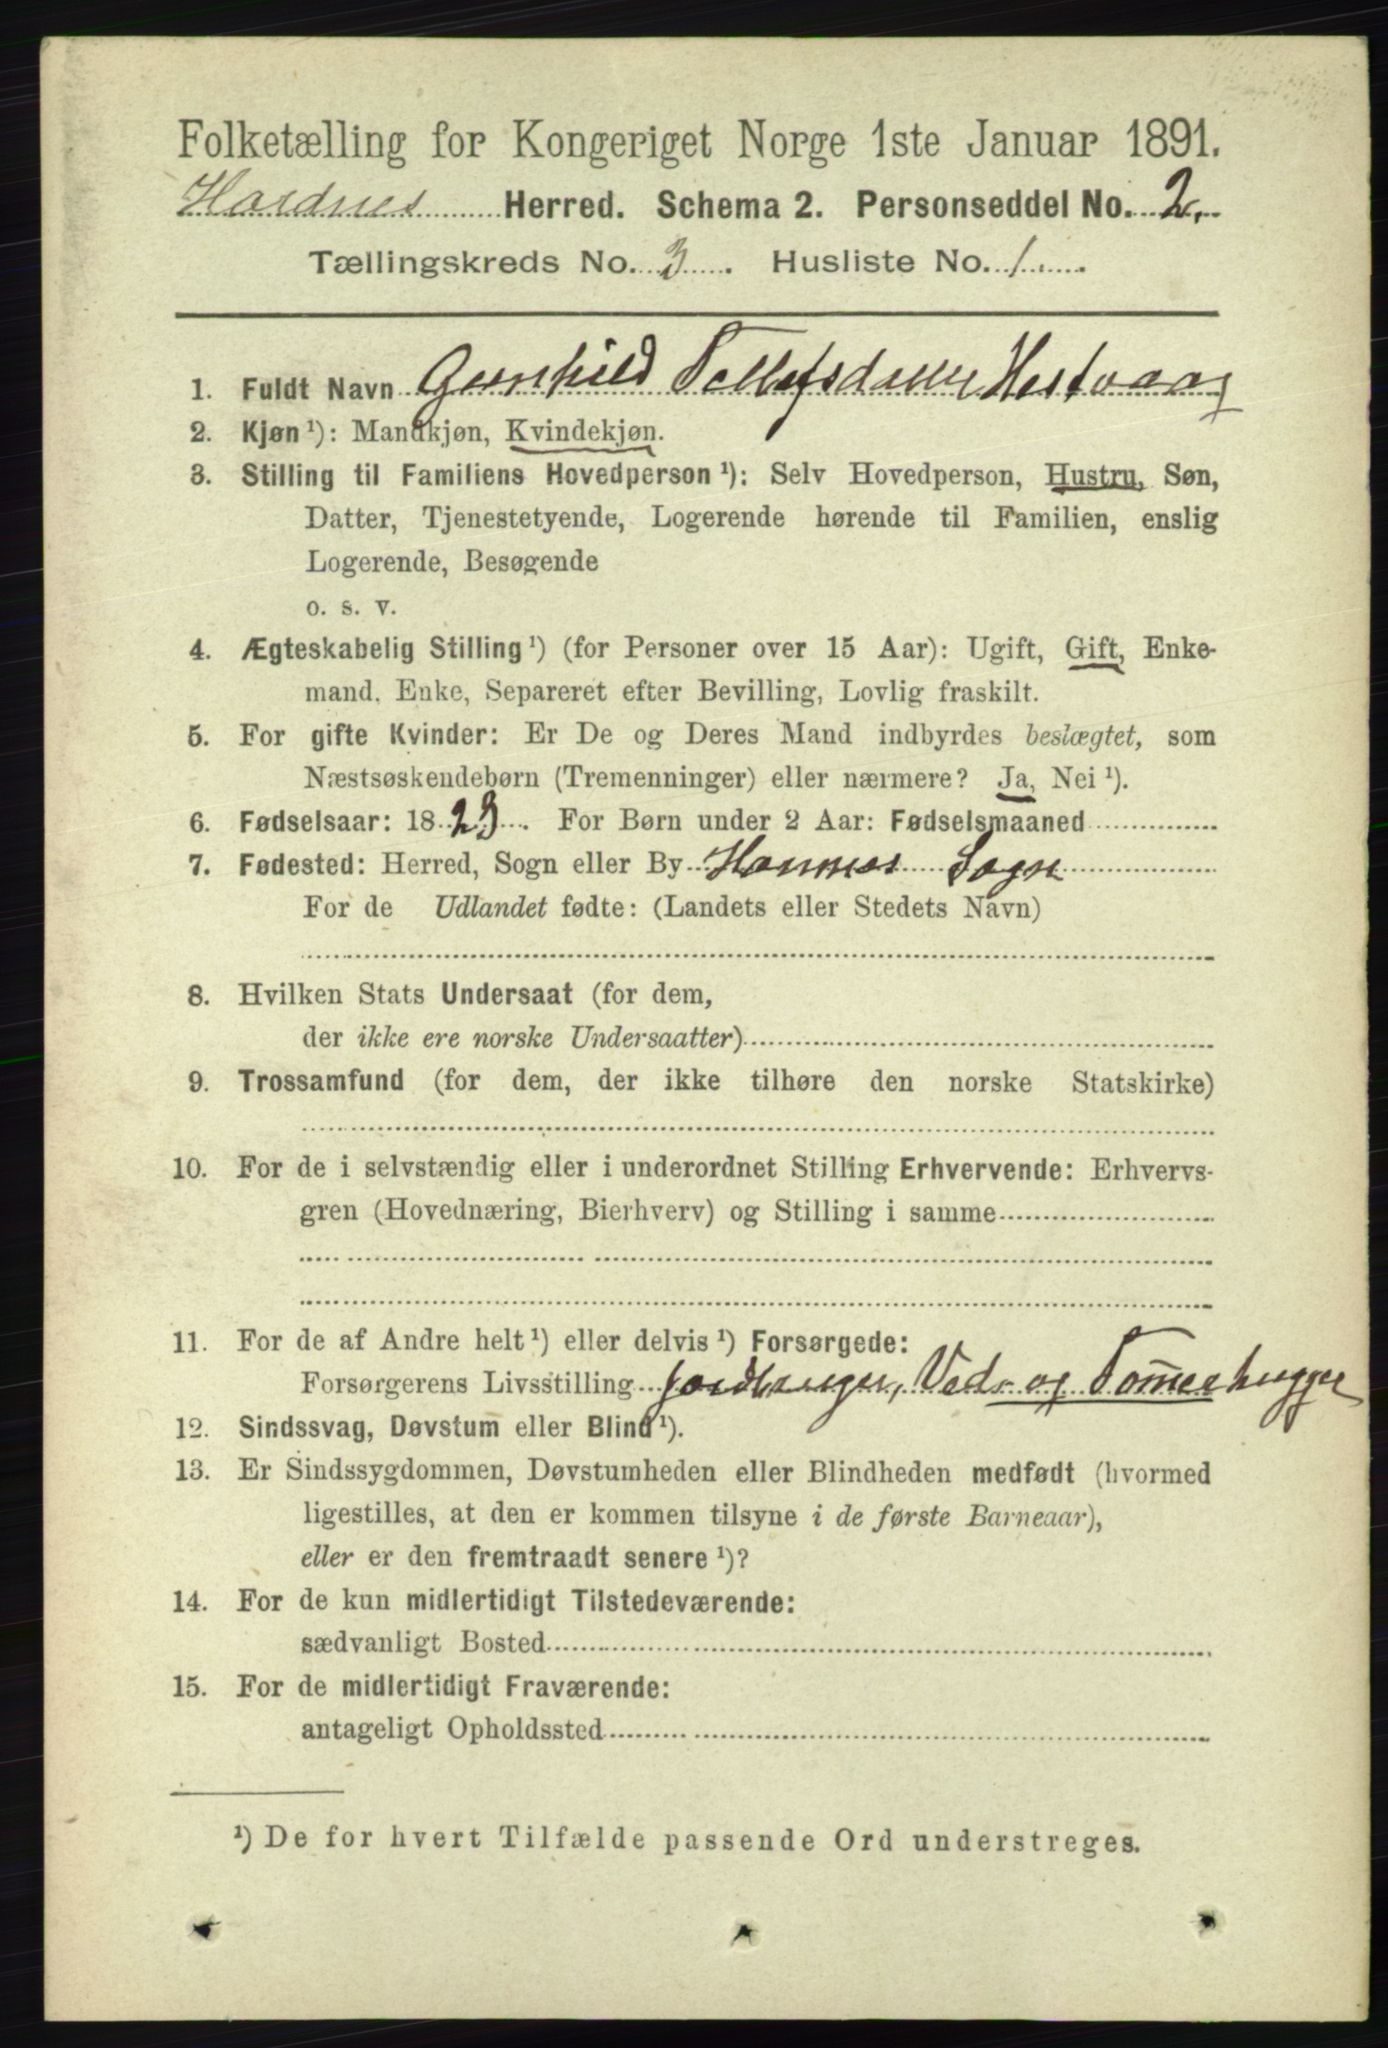 Folketælling for Kongeriget Norge 1ste Januar 1891.
Hordnes Herred. Schema 2. Personseddel No. 2.
Tællingskreds No. 3. Husliste No. 1.
1. Fuldt Navn Gunhild Tellefsdatter Hestvaag
2. Kjøn ¹): Mandkjøn, Kvindekjøn.
3. Stilling til Familiens Hovedperson ¹): Selv Hovedperson, Hustru, Søn,
Datter, Tjenestetyende, Logerende hørende til Familien, enslig
Logerende, Besøgende
o. s. v.
4. Ægteskabelig Stilling ¹) (for Personer over 15 Aar): Ugift, Gift, Enke-
mand, Enke, Separeret efter Bevilling, Lovlig fraskilt.
5. For gifte Kvinder: Er De og Deres Mand indbyrdes beslægtet, som
Næstsøskendebørn (Tremenninger) eller nærmere? Ja, Nei ¹).
6. Fødselsaar: 1823. For Børn under 2 Aar: Fødselsmaaned
7. Fødested: Herred, Sogn eller By Honnes Sogn
For de Udlandet fødte: (Landets eller Stedets Navn)
8. Hvilken Stats Undersaat (for dem,
der ikke ere norske Undersaatter)
9. Trossamfund (for dem, der ikke tilhøre den norske Statskirke)
10. For de i selvstændig eller i underordnet Stilling Erhvervende: Erhvervs-
gren (Hovednæring, Bierhverv) og Stilling i samme
11. For de af Andre helt ¹) eller delvis ¹) Forsørgede:
Forsørgerens Livsstilling Jordbruger, Ved- og Tom̅erhugger
12. Sindssvag, Døvstum eller Blind ¹).
13. Er Sindssygdommen, Døvstumheden eller Blindheden medfødt (hvormed
ligestilles, at den er kommen tilsyne i de første Barneaar),
eller er den fremtraadt senere ¹)?
14. For de kun midlertidigt Tilstedeværende:
sædvanligt Bosted
15. For de midlertidigt Fraværende:
antageligt Opholdssted
¹) De for hvert Tilfælde passende Ord understreges.